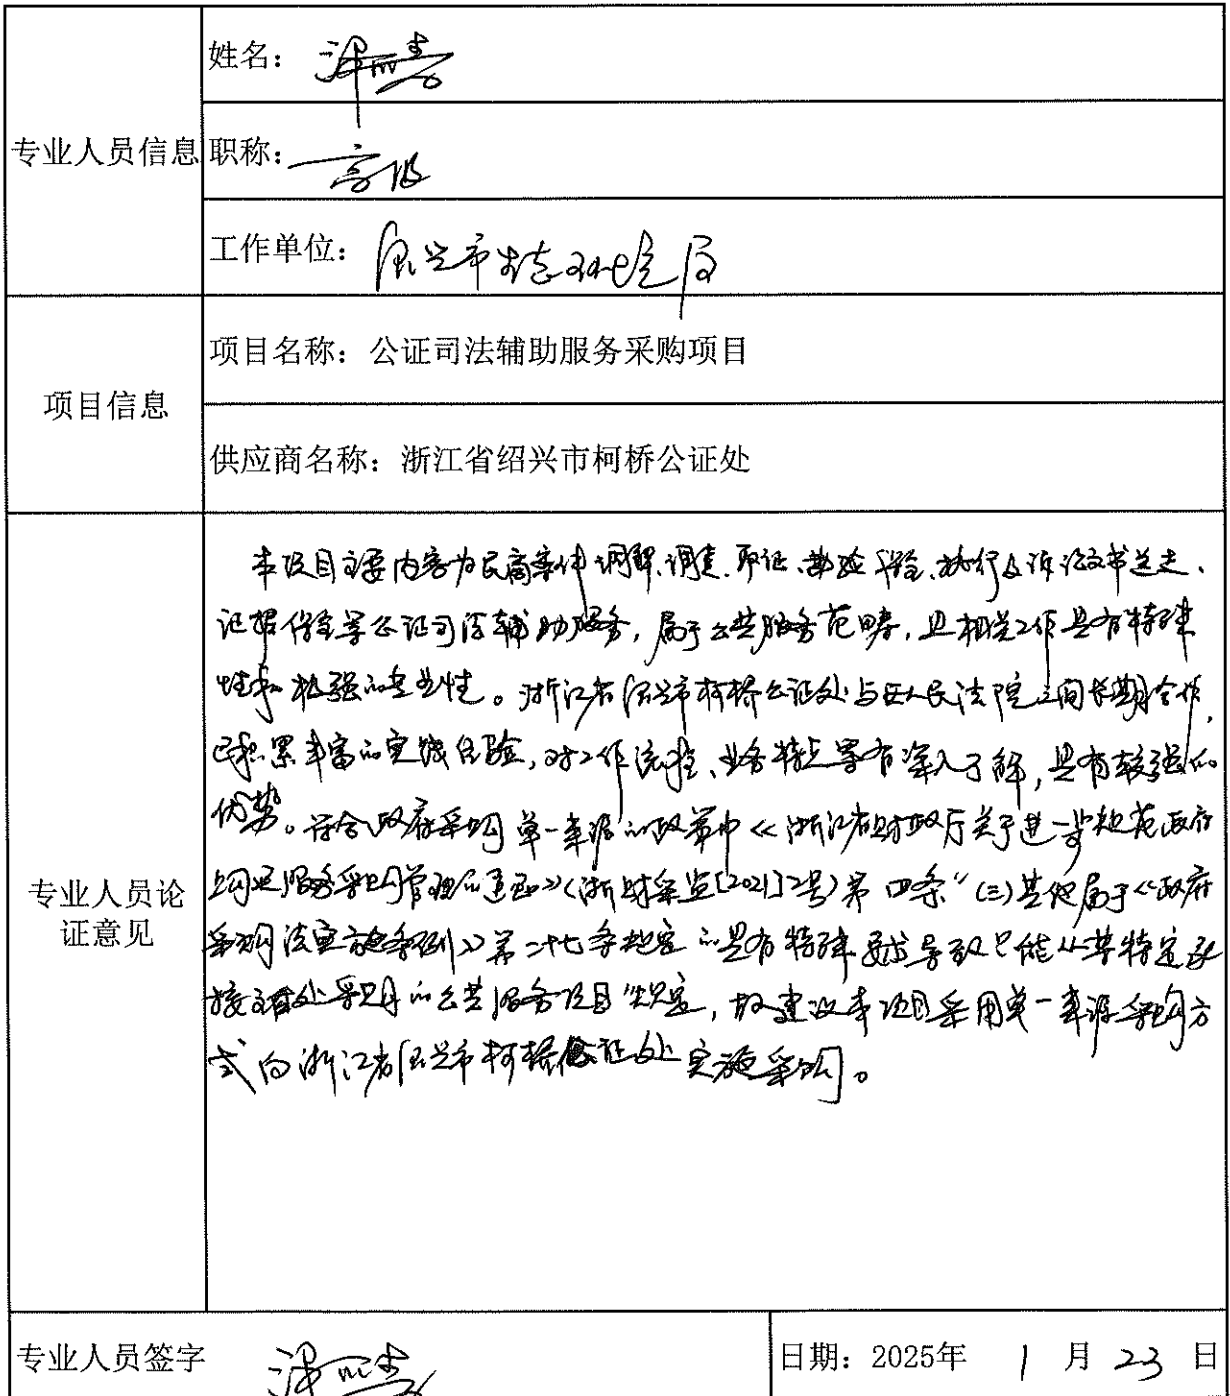 姓名：
专业人员信息
职称：高级
工作单位：绍兴市生态环境局
项目信息
项目名称：公证司法辅助服务采购项目
供应商名称：浙江省绍兴市柯桥公证处
专业人员论
证意见
本项目主要内容为民商事件调解、调查、取证、勘验、保全、执行及诉讼文书送达、
证据保全等公证司法辅助服务，属于公共服务范畴，且相关工作具有特殊
性和极强的专业性。浙江省绍兴市柯桥公证处与区人民法院之间长期合作，
已积累丰富的实践经验，对工作流程、业务特点等有深入了解，具有较强的
优势。符合政府采购单一来源的政策中《浙江省财政厅关于进一步规范政府
采购服务采购管理的通知》（浙财采监[2021]2号）第四条“（三）其他属于《政府
采购法实施条例》第二十七条规定的具有特殊要求导致只能从某特定承
接主体处采购的公共服务项目”规定，故建议本项目采用单一来源采购方
式向浙江省绍兴市柯桥公证处实施采购。
专业人员签字
日期：2025年 1 月 23 日